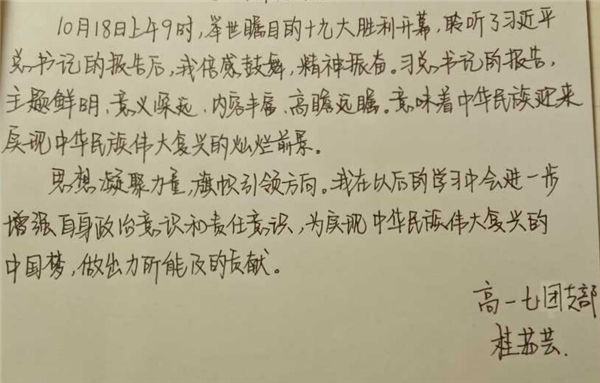 10月18日上午9时，举世瞩目的十九大胜利开幕，聆听了习近平
总书记的报告后，我倍感鼓舞，精神振奋。习总书记的报告，
主题鲜明，意义深远，内容丰富，高瞻远瞩。意味着中华民族迎来
实现中华民族伟大复兴的灿烂前景。
思想凝聚力量，旗帜引领方向。我在以后的学习中会进一步
增强自身政治意识和责任意识，为实现中华民族伟大复兴的
中国梦，做出力所能及的贡献。
高一七团支部
桂芸